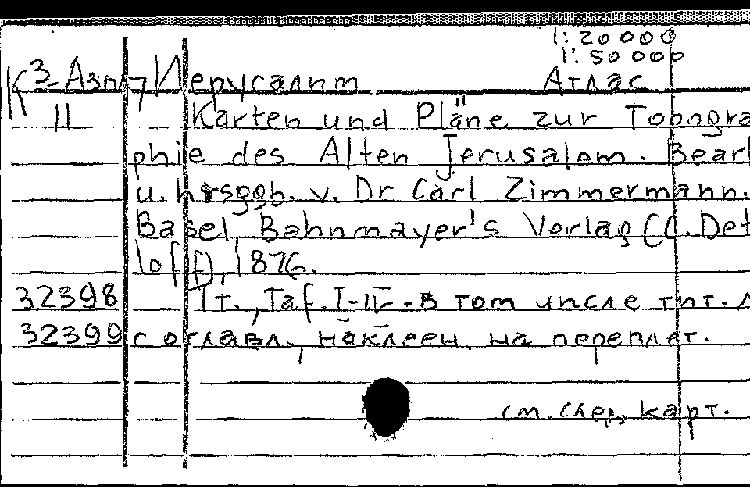 1:20000
1:50000
К3-Аз Иерусалим Атлас
11 Karten und Pläne zur Topogra
phie des Alten Jerusalem. Bearb
u. hrsgob. v. Dr Carl Zimmermann.
Basel, Bahnmayer's Verlag (C. Det
loff), 1876.
32398 1т., Taf. I-IV - в том числе тит. л
32399 с оглавл., наклеен. на переплет.
см. след. карт.